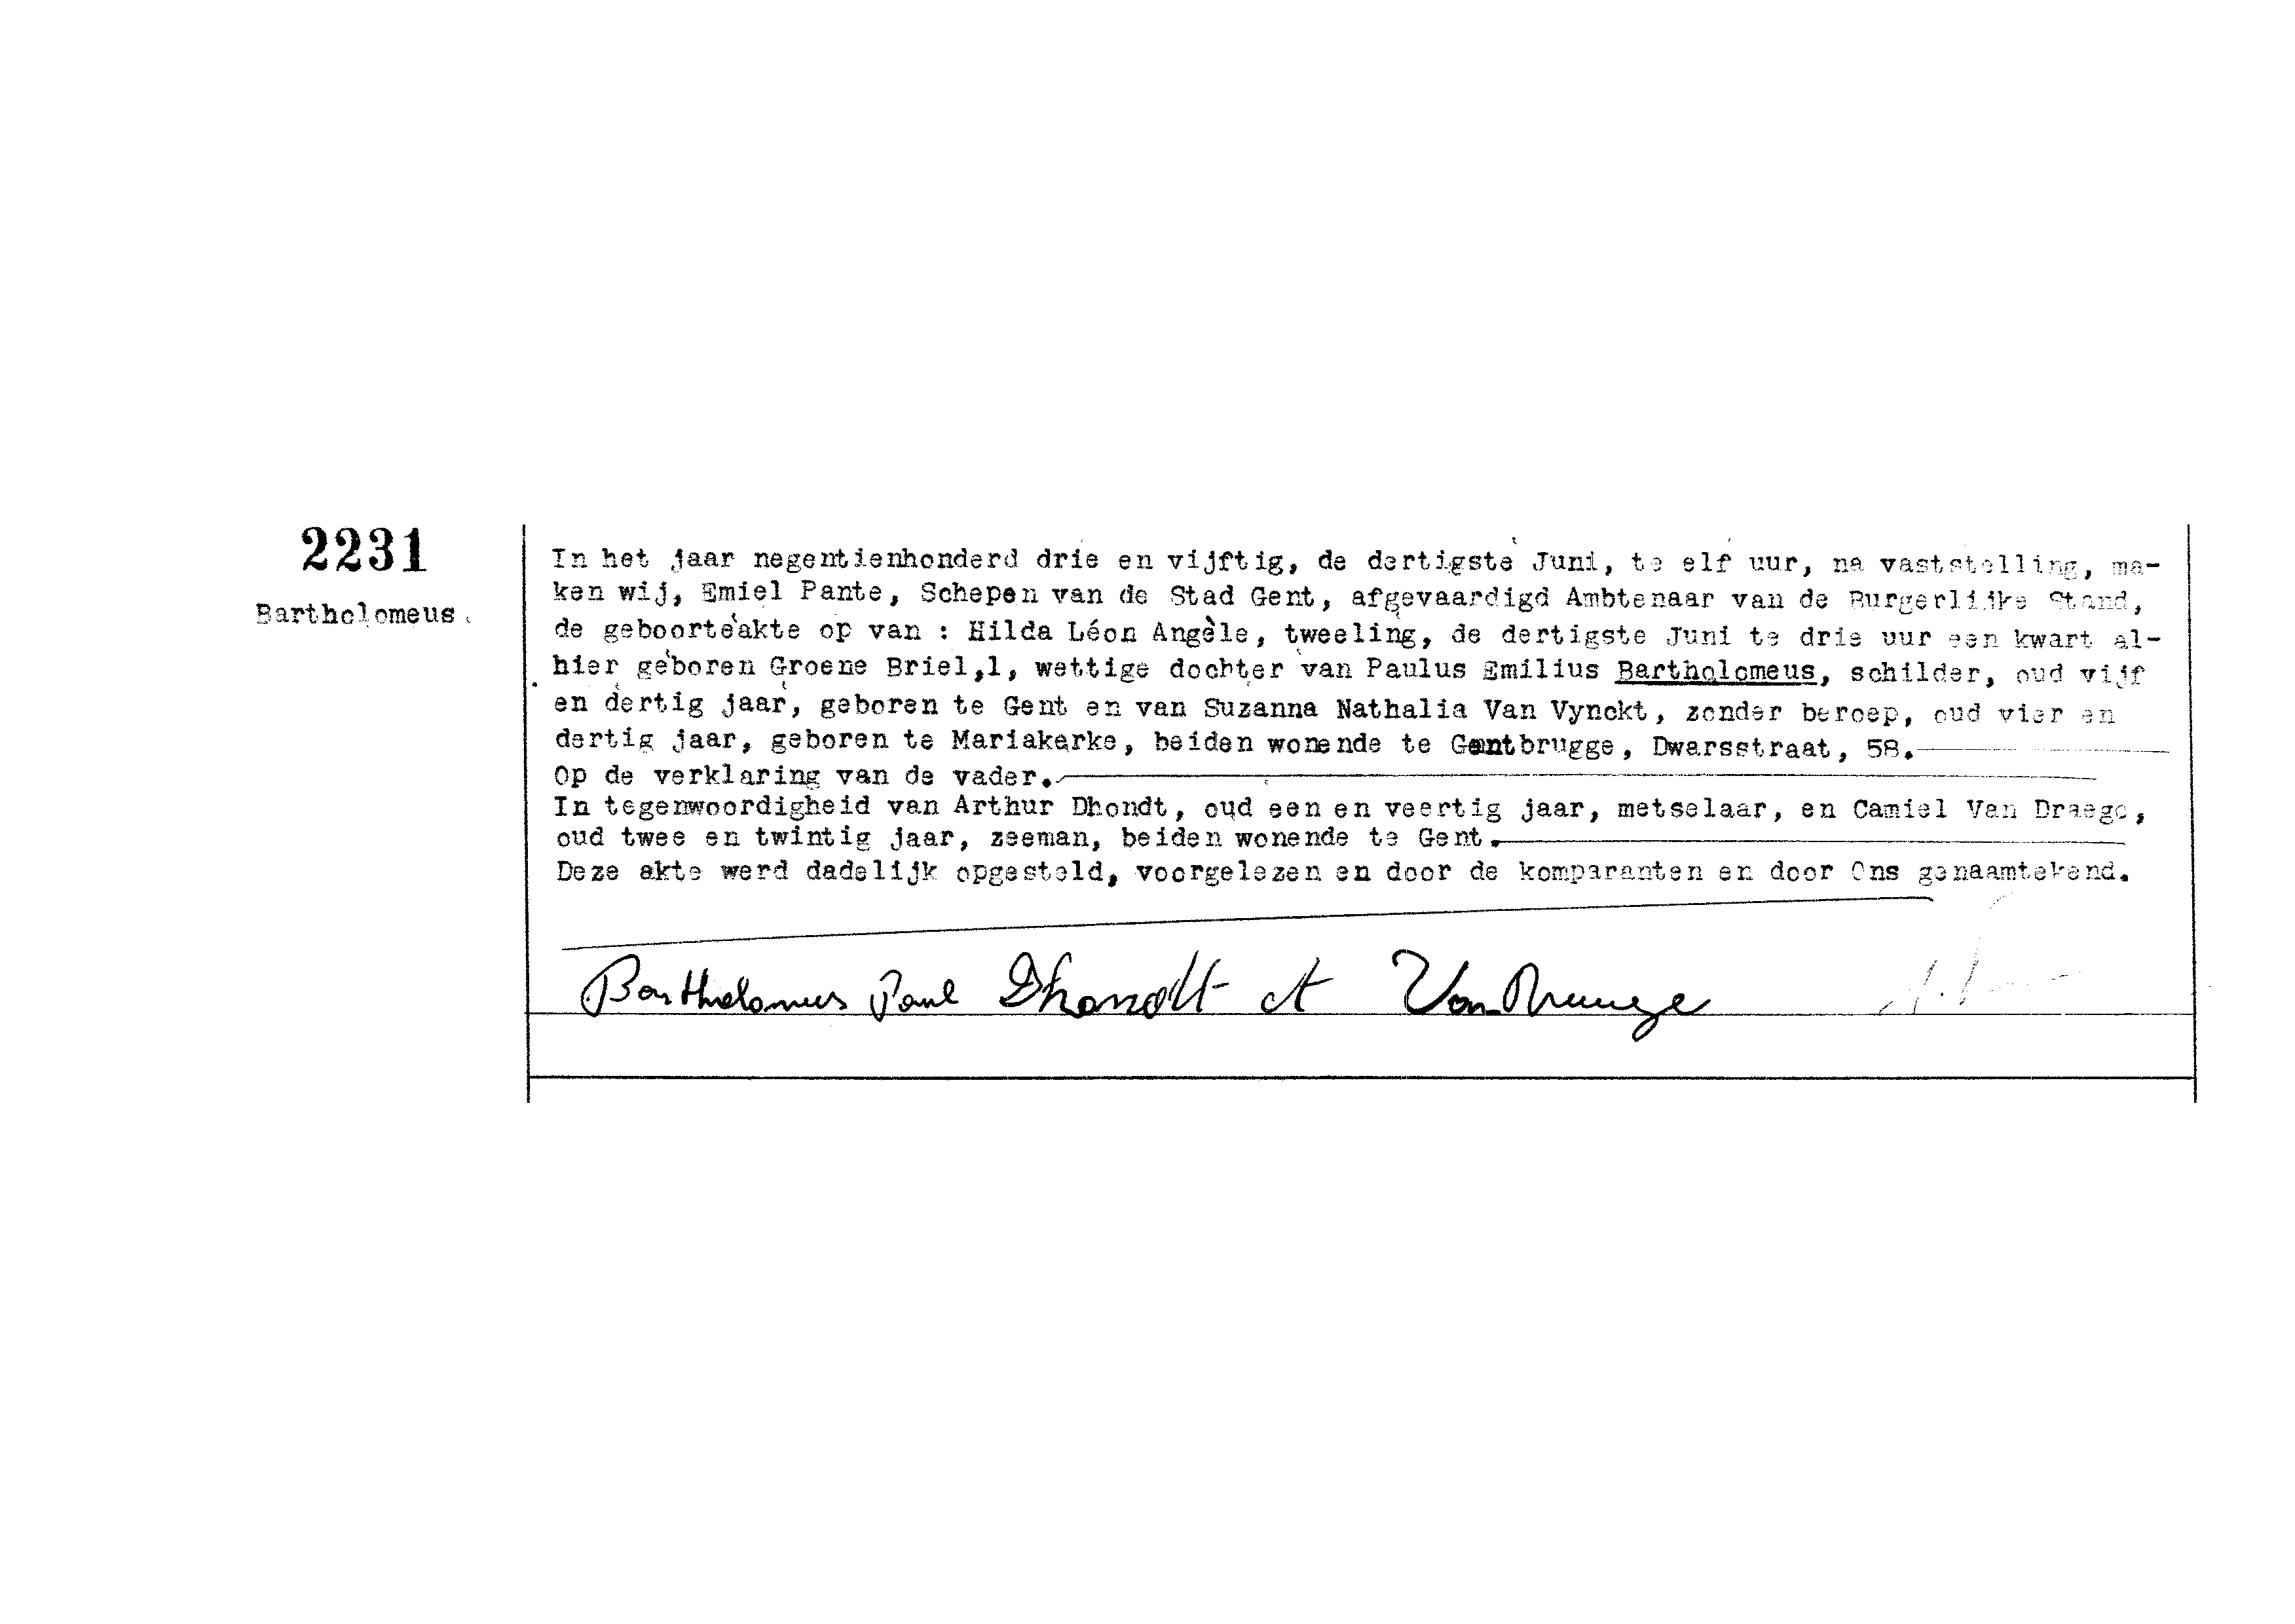 2231
Bartholomeus.
In het jaar negentienhonderd drie en vijftig, de dertigste Juni, te elf uur, na vaststelling, ma-
ken wij, Emiel Pante, Schepen van de Stad Gent, afgevaardigd Ambtenaar van de Burgerlijke Stand,
de geboorteakte op van : Hilda Léon Angèle, tweeling, de dertigste Juni te drie uur een kwart al-
hier geboren Groene Briel,1, wettige dochter van Paulus Emilius Bartholomeus, schilder, oud vijf
en dertig jaar, geboren te Gent en van Suzanna Nathalia Van Vynckt, zonder beroep, oud vier en
dertig jaar, geboren te Mariakerke, beiden wonende te Gentbrugge, Dwarsstraat, 58.
Op de verklaring van de vader.
In tegenwoordigheid van Arthur Dhondt, oud een en veertig jaar, metselaar, en Camiel Van Draege,
oud twee en twintig jaar, zeeman, beiden wonende te Gent.
Deze akte werd dadelijk opgesteld, voorgelezen en door de komparanten en door Ons genaamtekend.
Bartholomeus Paul Dhondt A Van